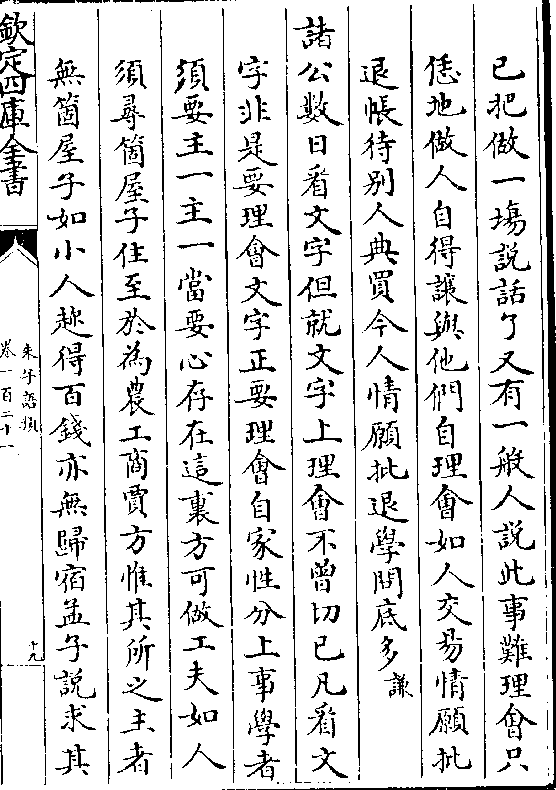 已把做一場說話了又有一般人說此事難理會只
恁地做人自得讓與他們自理會如人交易情願批
退帳待别人典買今人情願批退學問底多謙
諸公數日看文字但就文字上理會不曾切已凡看文
字非是要理會文字正要理會自家性分上事學者
須要主一主一當要心存在這裏方可做工夫如人
須尋箇屋子住至於為農工商賈方惟其所之主者
無箇屋子如小人趂得百錢亦無歸宿孟子說求其
欽定四庫全書
朱子語類
卷一百二十一
十九